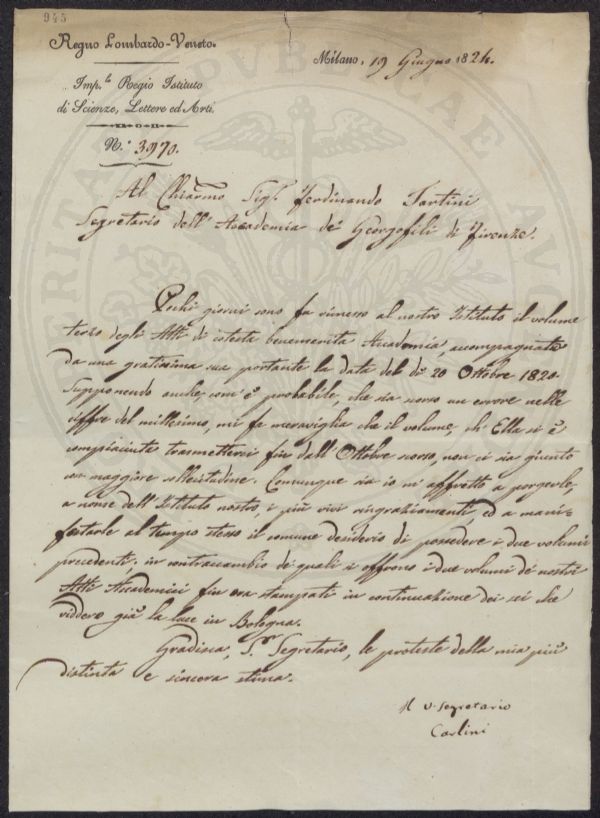 943
Regno Lombardo-Veneto.
Imp.le Regio Istituto
di Scienze, Lettere ed Arti.
N.° 3970.
Milano, 19 Giugno 1824.
Al Chiarmo Sigr. Ferdinando Tartini
Segretario dell' Accademia de' Georgofili di Firenze.
Pochi giorni sono fu rimesso al nostro Istituto il volume
terzo degli Atti di cotesta benemerita Accademia, accompagnato
da una gratissima sua portante la data del dì 20 Ottobre 1820.
Supponendo anche, com' è probabile, che sia scorso un errore nelle
cifre del millesimo, mi fa meraviglia che il volume, ch' Ella si è
compiaciuta trasmetterci fin dall' Ottobre scorso, non ci sia giunto
con maggiore sollecitudine. Comunque sia io m' affretto a porgerle,
a nome dell' Istituto nostro, i più vivi ringraziamenti, ed a mani-
festarle al tempo stesso il comune desiderio di possedere i due volumi
precedenti, in contraccambio de' quali si offrono i due volumi de' nostri
Atti Accademici fin ora stampati in continuazione dei sei che
viddero già la luce in Bologna.
Gradisca, S.r Segretario, le proteste della mia più
distinta e sincera stima.
Il V. Segretario
Carlini